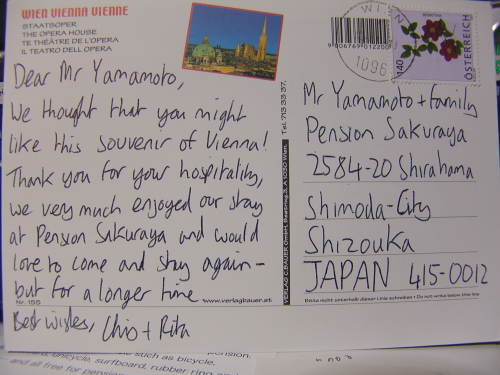 WIEN VIENNA VIENNE
STAATSOPER
THE OPERA HOUSE
TE THÉÂTRE DE L'OPERA
IL TEATRO DELL OPERA
Dear Mr Yamamoto,
We thought that you might
like this souvenir of Vienna!
Thank you for your hospitality,
we very much enjoyed our stay
at Pension Sakuraya and would
love to come and stay again-
but for a longer time
Best wishes, Chis + Rita
Nr. 155
www.verlagbauer.at
VERLAG C.BAUER GmbH,
A 1030 Wien,
Tel.: 713 33 37.
9006769012200
WIEN
1096
140
ÖSTERREICH
Mr Yamamoto + family
Pension Sakuraya
2584-20 Shirahama
Shimoda-City
Shizouka
JAPAN 415-0012
Bitte nicht unterhalb dieser Linie schreiben • Do not write below this line
such as bicycle,
unicycle, surfboard, rubber ring and
and all free for